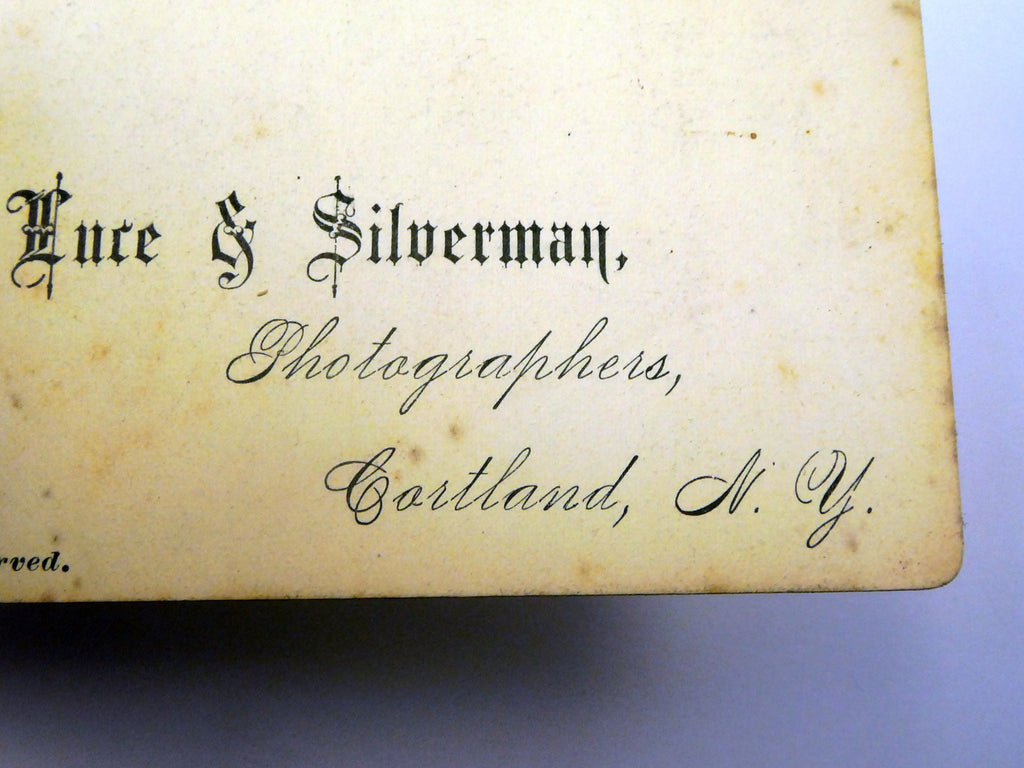 Luce & Silverman,
Photographers,
Cortland, N. Y.
rved.